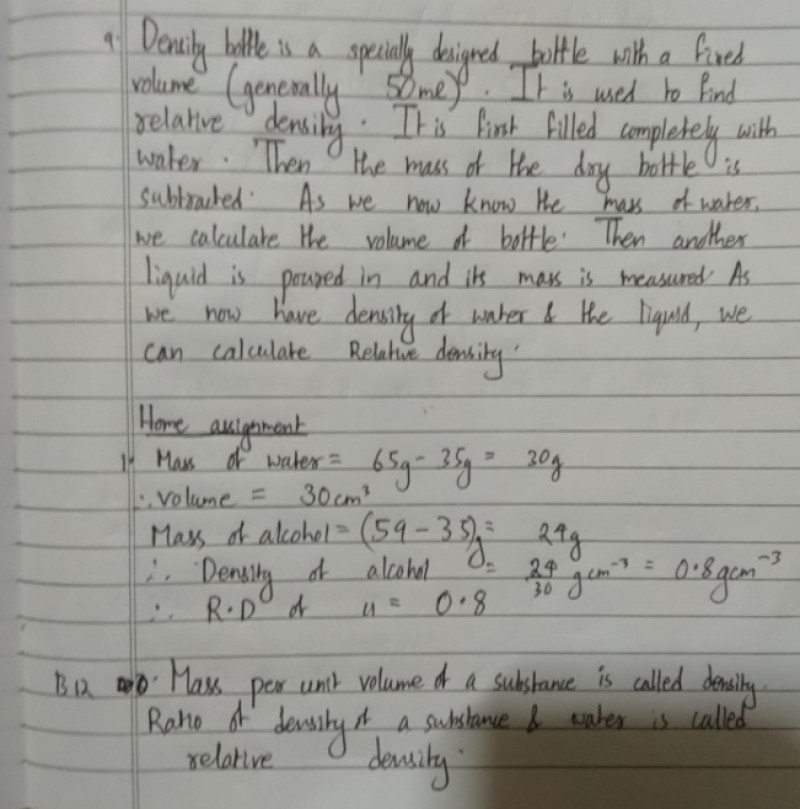 9. Density bottle is a specially designed bottle with a fixed
volume (generally 50ml). It is used to find
relative density. It is first filled completely with
water. Then the mass of the dry bottle is
subtracted. As we now know the mass of water,
we calculate the volume of bottle. Then another
liquid is poured in and its mass is measured. As
we now have density of water & the liquid, we
can calculate Relative density.
Home assignment
1. Mass of water = 65g - 35g = 30g
∴ volume = 30cm³
Mass of alcohol = (59 - 35)g = 24g
∴ Density of alcohol = 24/30 gcm⁻³ = 0.8gcm⁻³
∴ R.D of u = 0.8
B12 Mass per unit volume of a substance is called density.
Ratio of density of a substance & water is called
relative density.